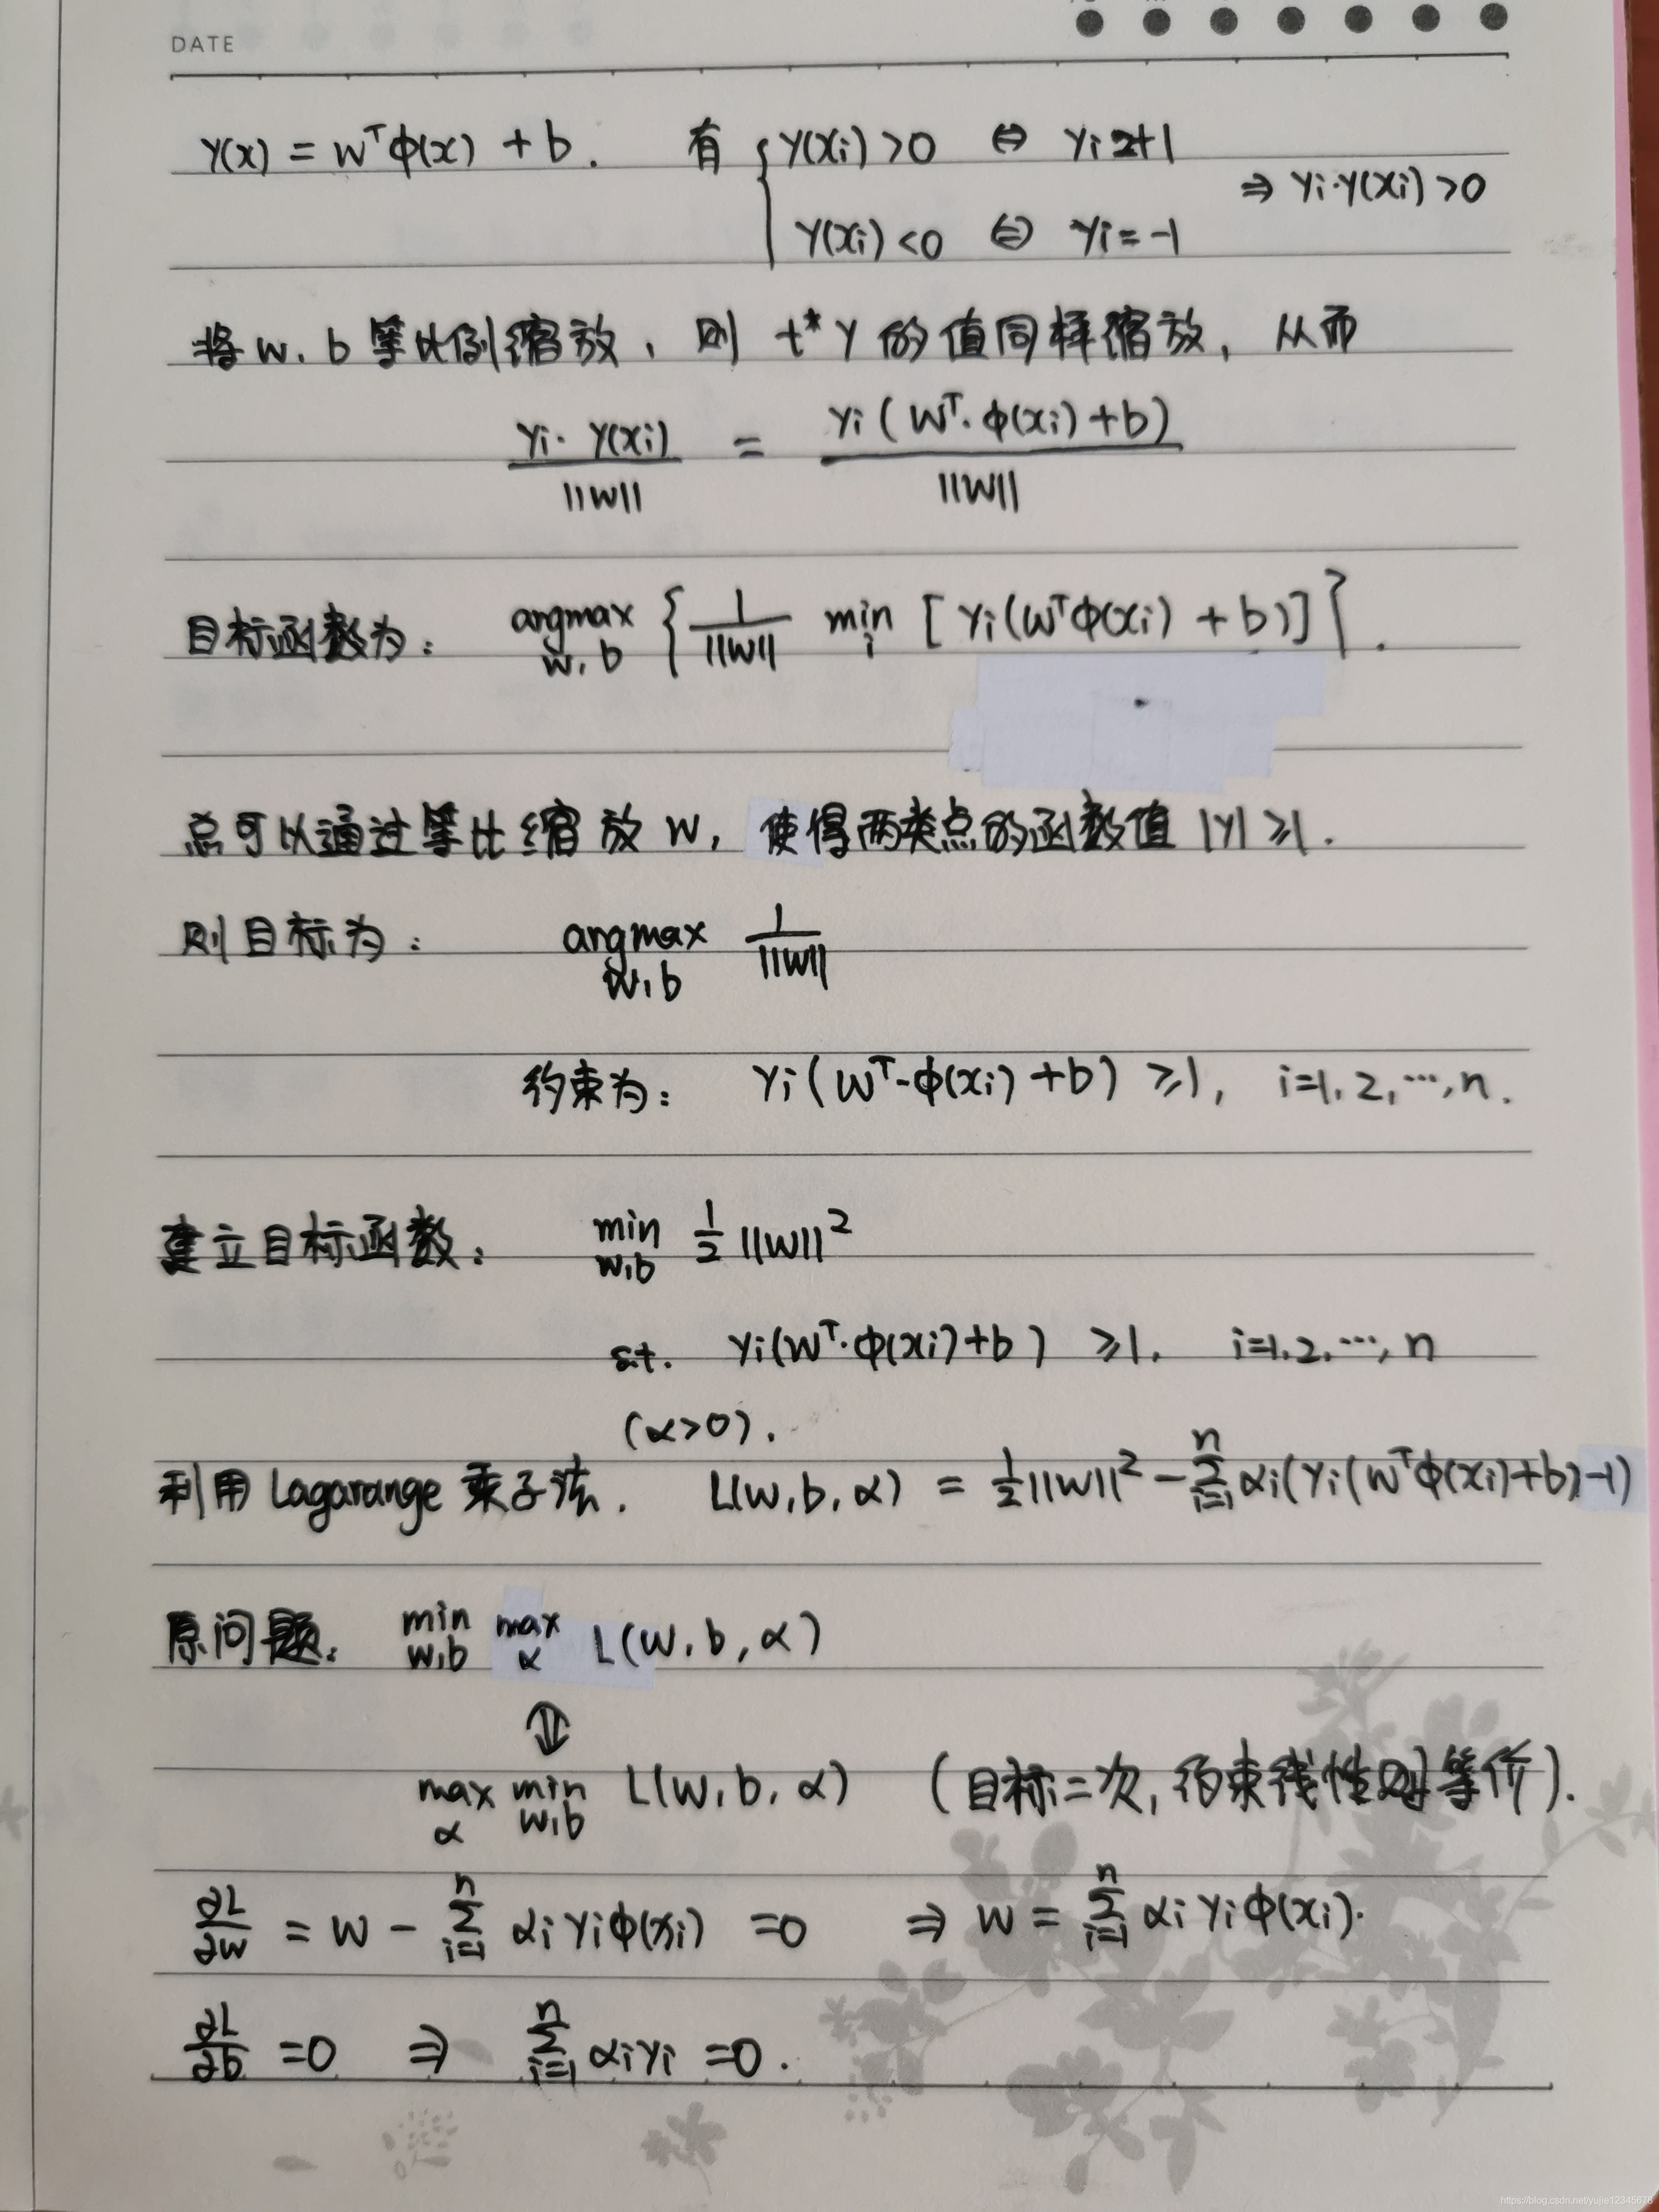 DATE
y(x) = wᵀφ(x) + b. 有 { y(xi) >0 ⇔ yi=+1
⇒ yi·y(xi) >0
y(xi) <0 ⇔ yi=-1
将w,b等比例缩放,则 t*y 的值同样缩放,从而
yi·y(xi) / ||w|| = yi(wᵀ·φ(xi)+b) / ||w||
目标函数为: argmax w,b { 1/||w|| min i [yi(wᵀφ(xi) + b)] }.
总可以通过等比缩放w,使得两类点的函数值|y|≥1.
则目标为: argmax w,b 1/||w||
约束为: yi(wᵀ·φ(xi)+b) ≥1, i=1,2,…,n.
建立目标函数: min w,b 1/2 ||w||²
s.t. yi(wᵀ·φ(xi)+b) ≥1. i=1,2,…,n
(α>0).
利用Lagarange乘子法. L(w,b,α) = 1/2||w||² - Σ i=1 n αi(yi(wᵀφ(xi)+b)-1)
原问题: min w,b max α L(w,b,α)
⇕
max α min w,b L(w,b,α) (目标二次,约束线性则等价).
∂L/∂w = w - Σ i=1 n αiyiφ(xi) =0 ⇒ w = Σ i=1 n αiyiφ(xi).
∂L/∂b =0 ⇒ Σ i=1 n αiyi =0.
https://blog.csdn.net/yujie12345678